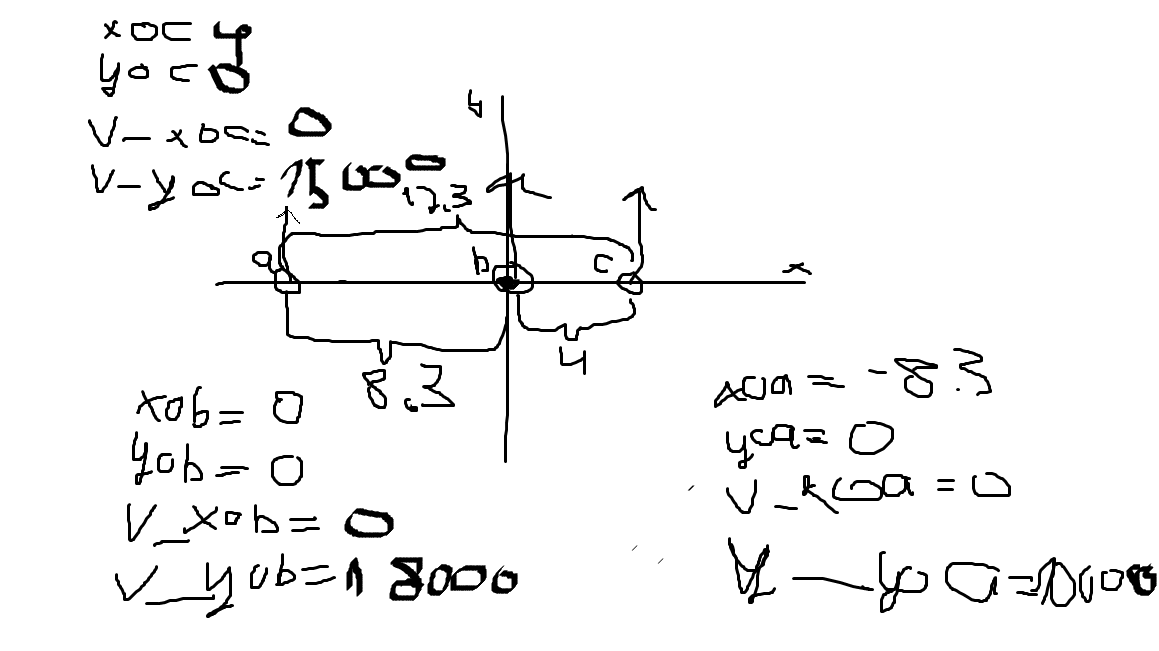 xoc 4
yo c 0
V_xoc= 0
V-yoc= 15000
17.3
y
a
b
c
x
8.3
4
xob= 0
yob= 0
V_xob= 0
V_yob= 18000
xoa= -8.3
yoa= 0
V_xoa= 0